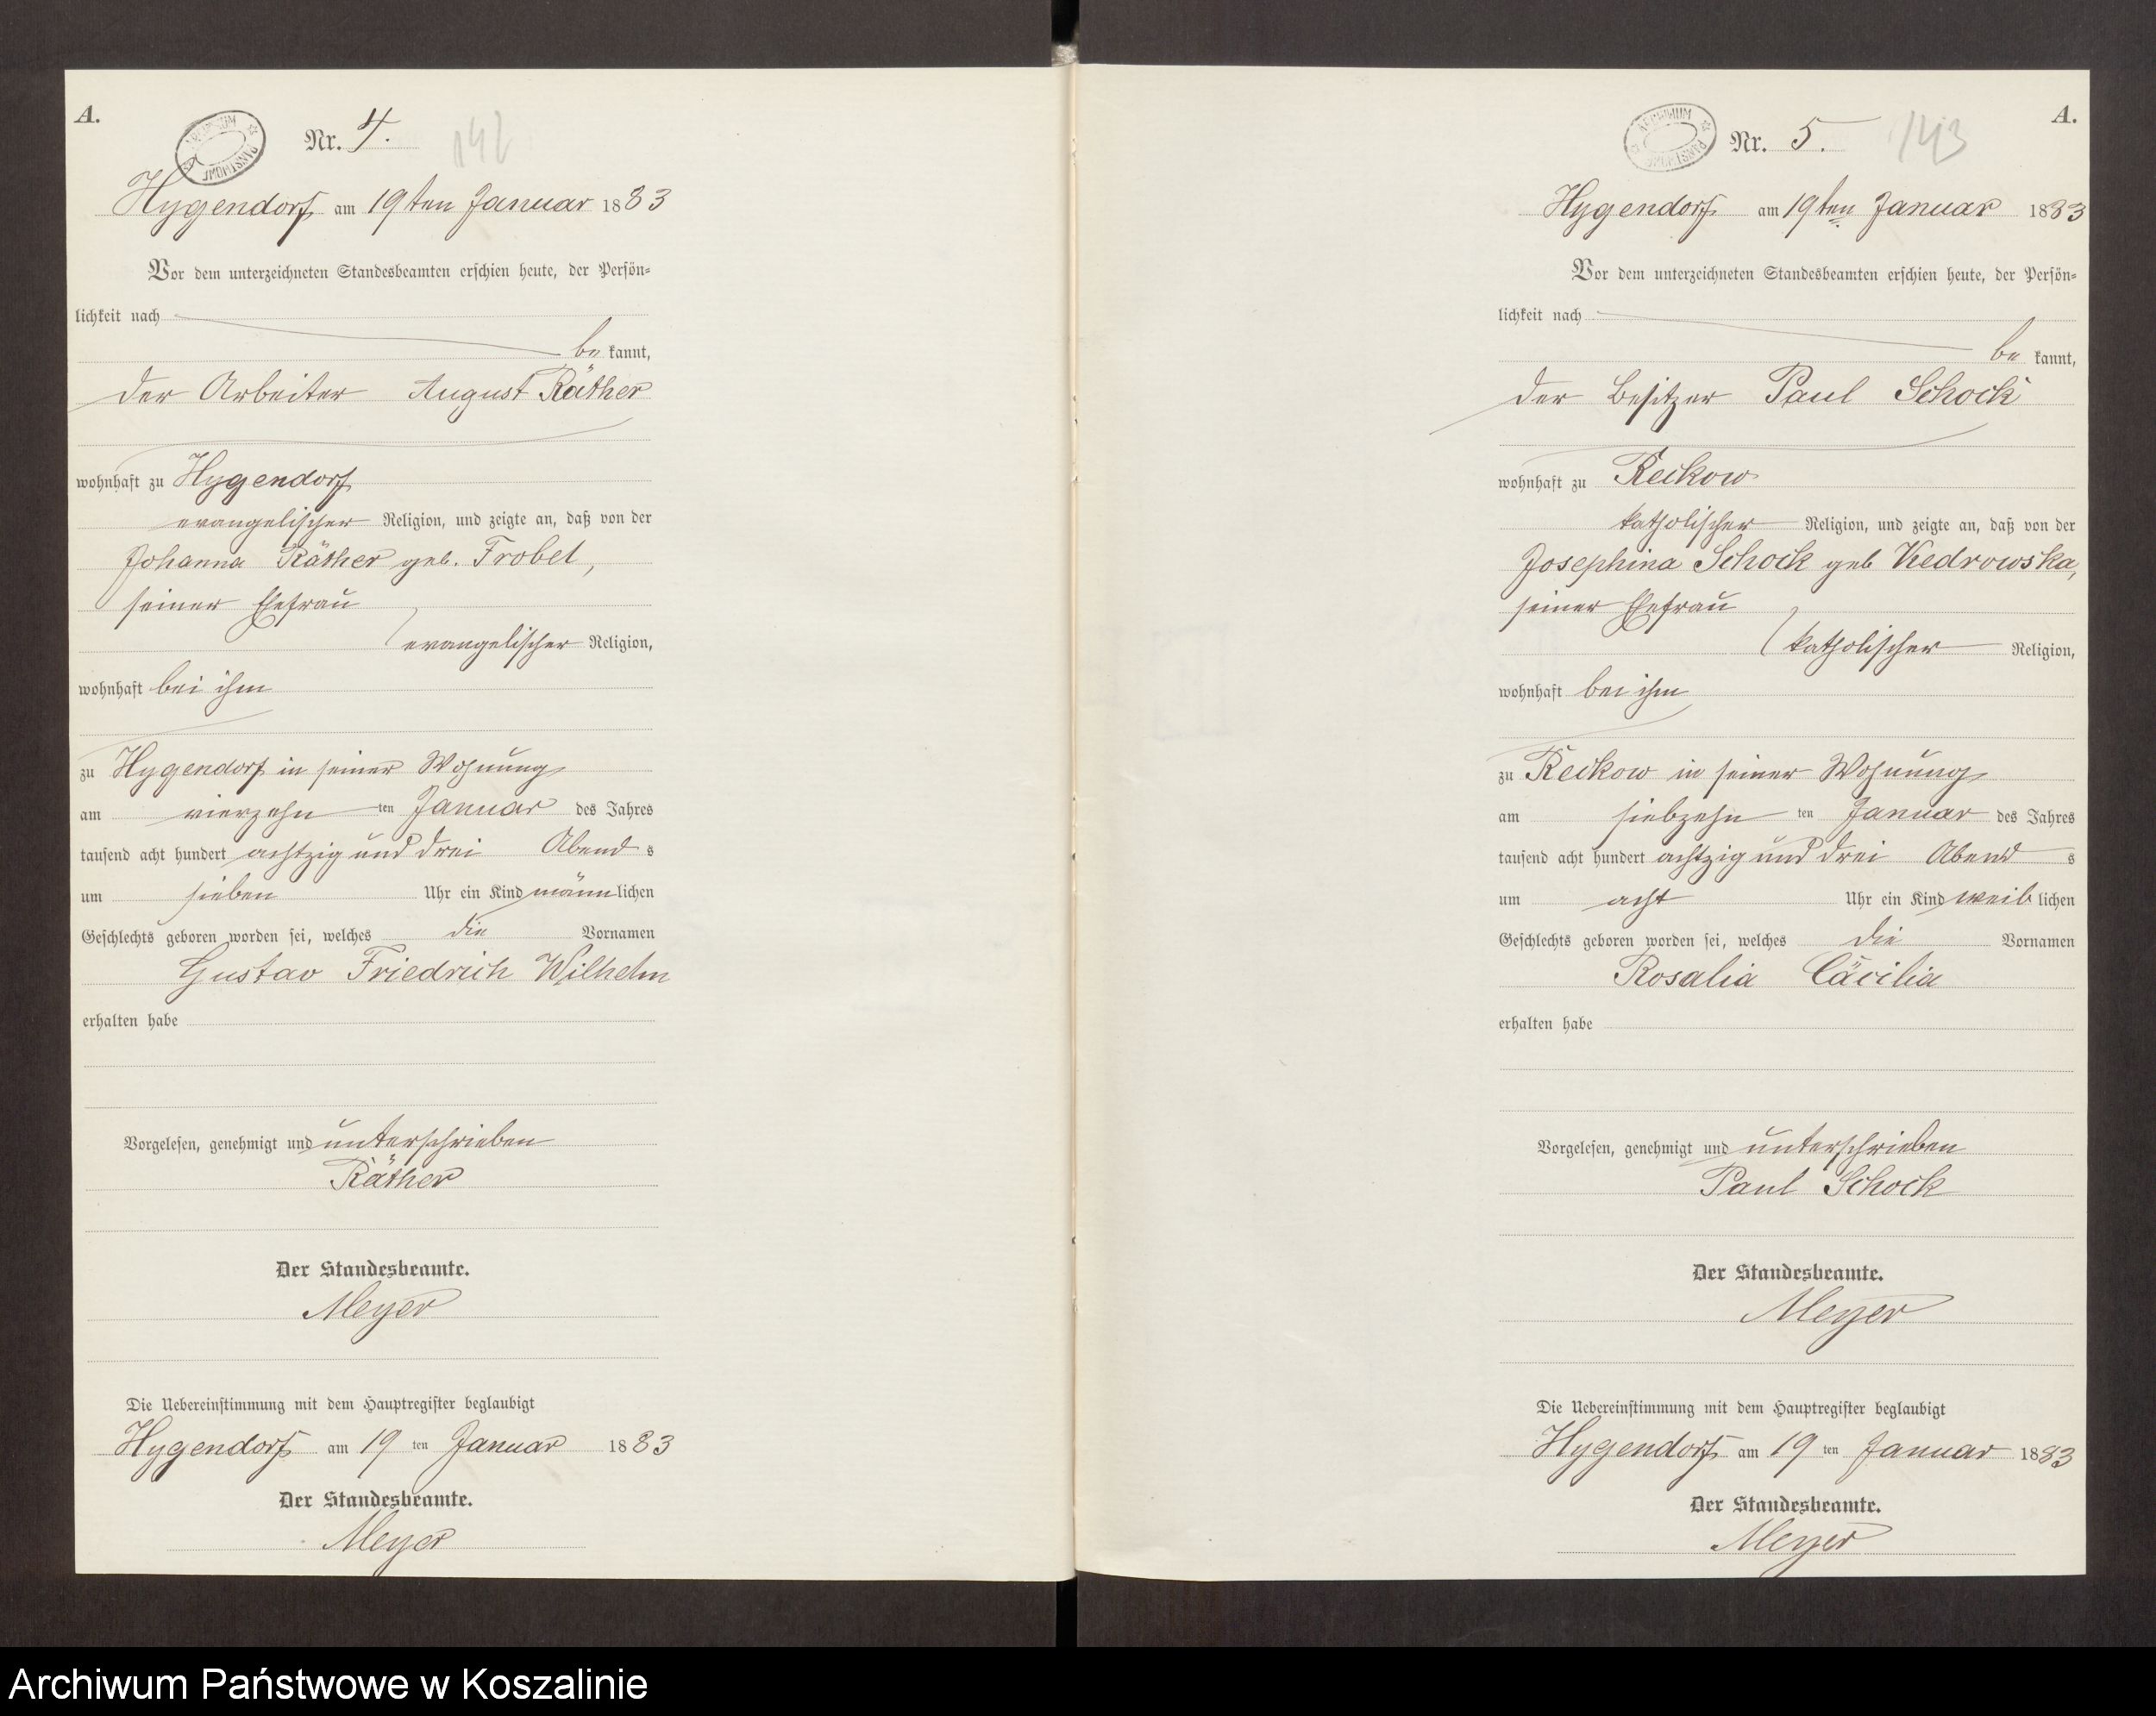 A.
ARCHIWUM PAŃSTWOWE
Nr. 4. 142
Hygendorf am 19ten Januar 1883
Vor dem unterzeichneten Standesbeamten erschien heute, der Persön-
lichkeit nach
be kannt,
der Arbeiter August Räther
wohnhaft zu Hygendorf
evangelischer Religion, und zeigte an, daß von der
Johanna Räther geb. Frobel,
seiner Ehefrau
evangelischer Religion,
wohnhaft bei ihm
zu Hygendorf in seiner Wohnung
am vierzehn ten Januar des Jahres
tausend acht hundert achtzig und drei Abend s
um sieben Uhr ein Kind männlichen
Geschlechts geboren worden sei, welches die Vornamen
Gustav Friedrich Wilhelm
erhalten habe
Vorgelesen, genehmigt und unterschrieben
Räther
Der Standesbeamte.
Meyer
Die Uebereinstimmung mit dem Hauptregister beglaubigt
Hygendorf am 19 ten Januar 1883
Der Standesbeamte.
Meyer
A.
ARCHIWUM PAŃSTWOWE
Nr. 5. 143
Hygendorf am 19ten Januar 1883
Vor dem unterzeichneten Standesbeamten erschien heute, der Persön-
lichkeit nach
be kannt,
der Besitzer Paul Schock
wohnhaft zu Reckow
katholischer Religion, und zeigte an, daß von der
Josephina Schock geb Kedrowska,
seiner Ehefrau
katholischer Religion,
wohnhaft bei ihm
zu Reckow in seiner Wohnung
am siebzehn ten Januar des Jahres
tausend acht hundert achtzig und drei Abend s
um acht Uhr ein Kind weib lichen
Geschlechts geboren worden sei, welches die Vornamen
Rosalia Cäcilia
erhalten habe
Vorgelesen, genehmigt und unterschrieben
Paul Schock
Der Standesbeamte.
Meyer
Die Uebereinstimmung mit dem Hauptregister beglaubigt
Hygendorf am 19 ten Januar 1883
Der Standesbeamte.
Meyer
Archiwum Państwowe w Koszalinie